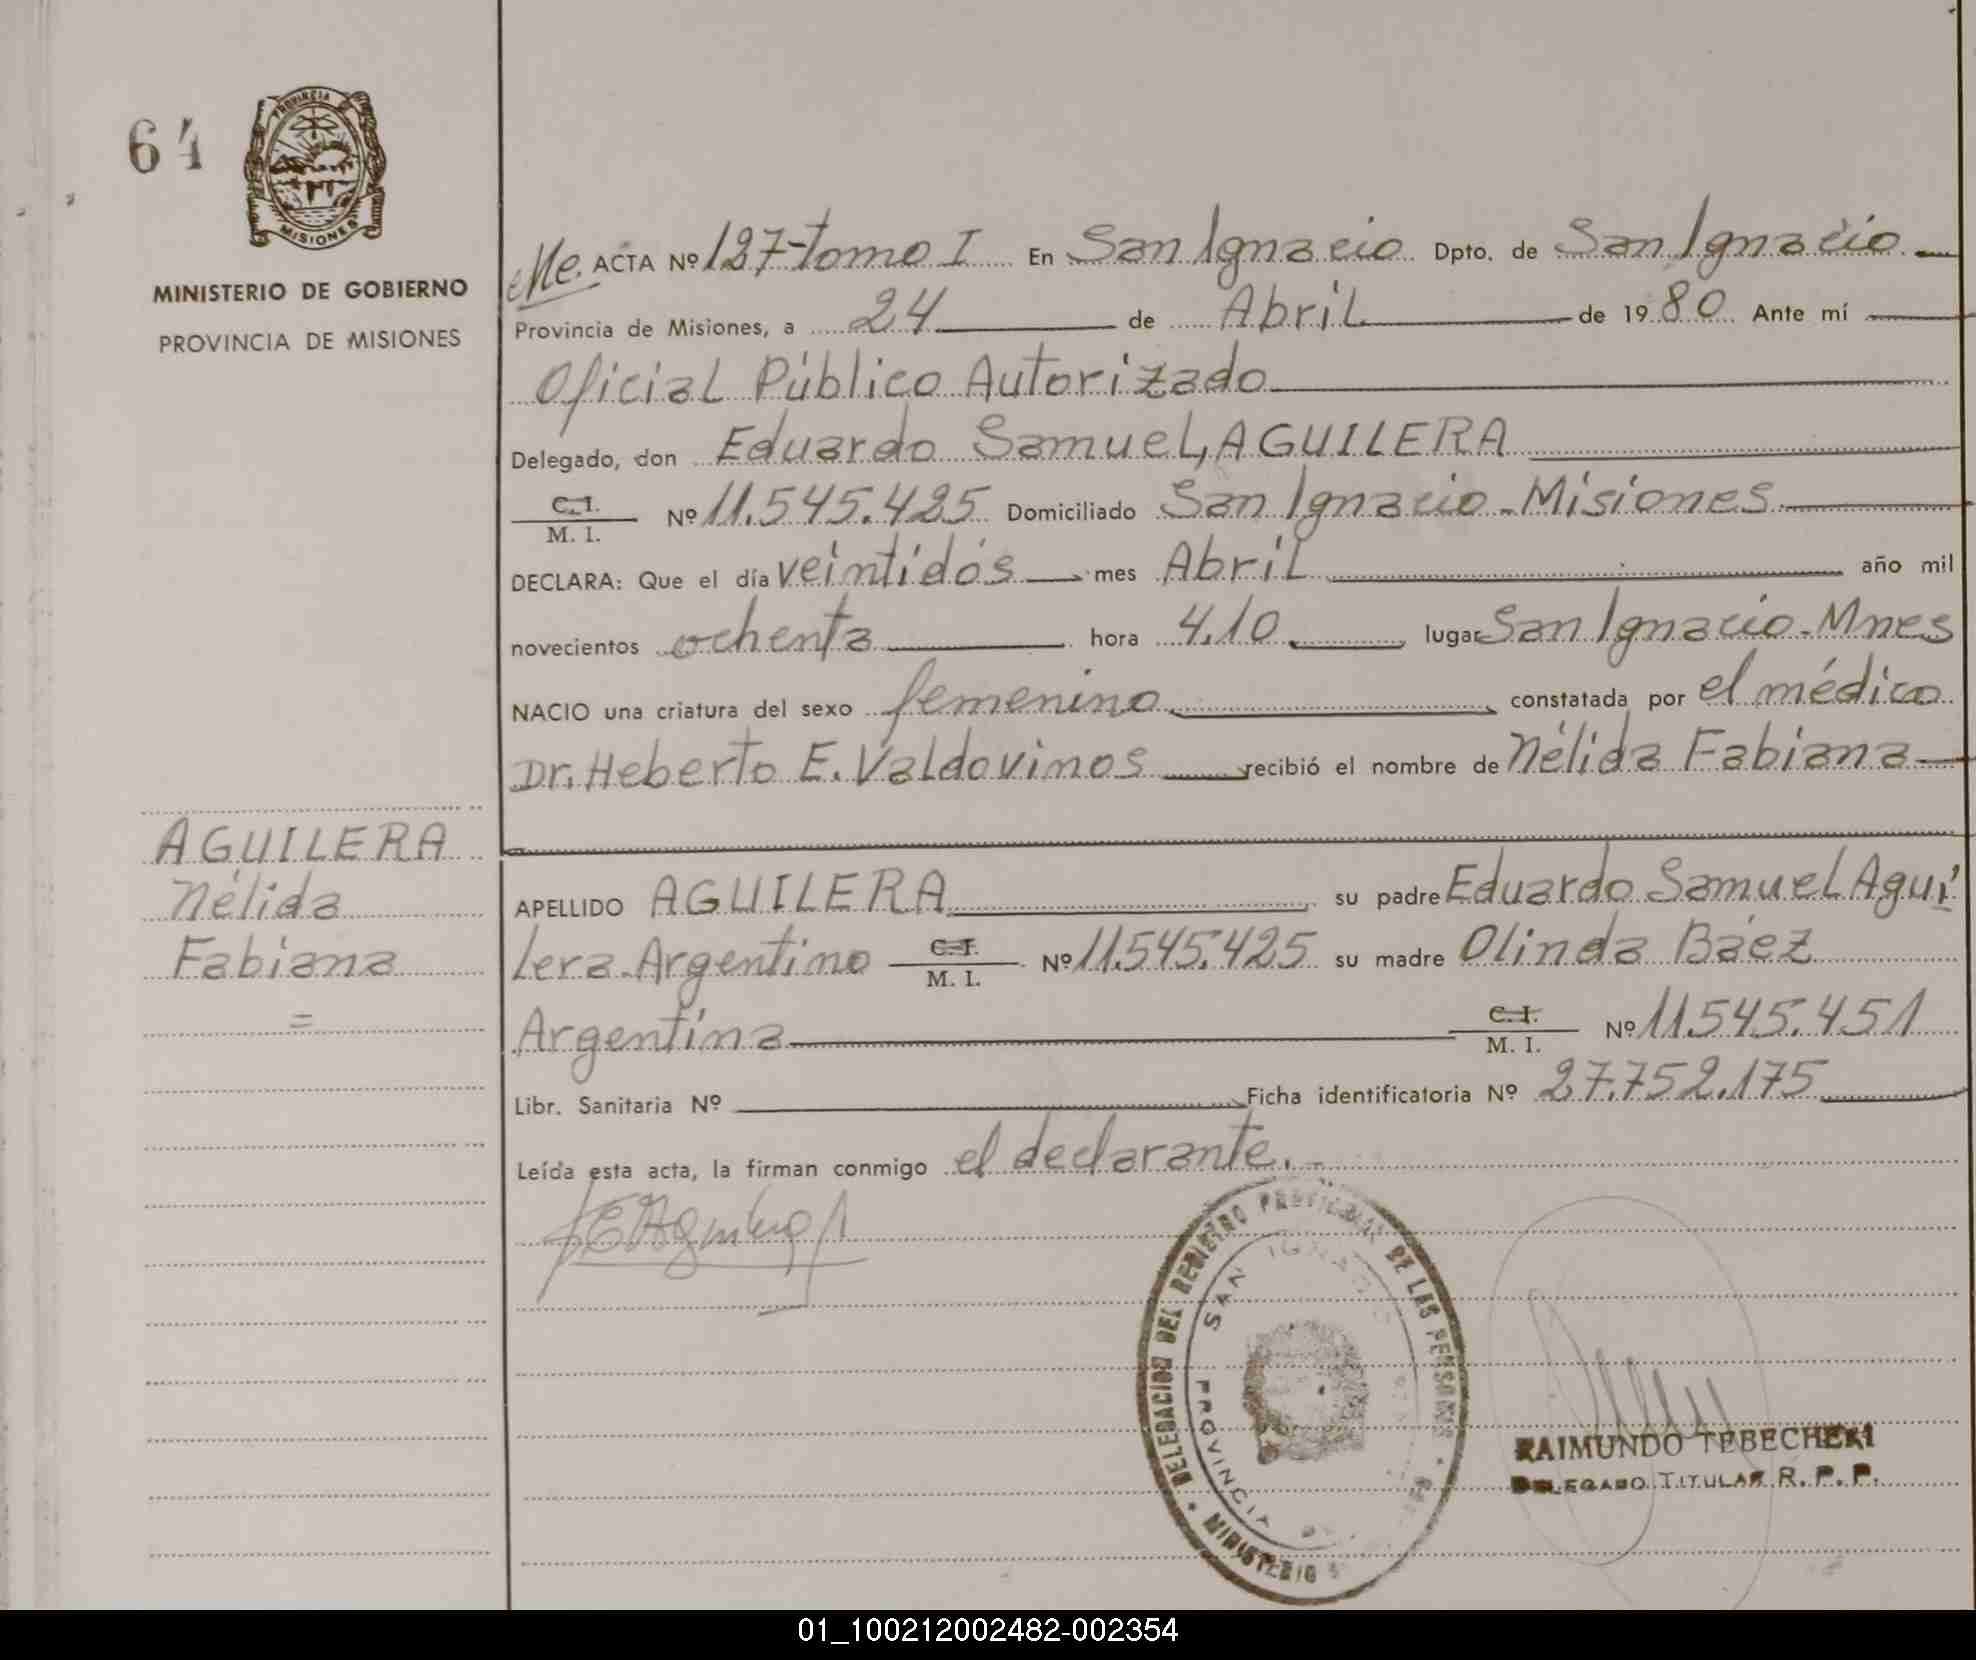 64
PROVINCIA
MISIONES
MINISTERIO DE GOBIERNO
PROVINCIA DE MISIONES
ACTA Nº 127-tomo I En San Ignacio Dpto. de San Ignacio
Provincia de Misiones, a 24 de Abril de 1980 Ante mí
Oficial Público Autorizado
Delegado, don Eduardo Samuel, AGUILERA
C. I.
M. I. Nº 11.545.425 Domiciliado San Ignacio - Misiones
DECLARA: Que el día veintidós mes Abril año mil
novecientos ochenta hora 4,10 lugar San Ignacio - Mnes
NACIO una criatura del sexo femenino constatada por el médico
Dr. Heberto E. Valdovinos recibió el nombre de Nélida Fabiana
AGUILERA
Nélida
Fabiana
=
APELLIDO AGUILERA su padre Eduardo Samuel Agui
lera - Argentino C. I. M. I. Nº 11.545.425 su madre Olinda Báez
Argentina C. I. M. I. Nº 11.545.451
Libr. Sanitaria Nº Ficha identificatoria Nº 27.752.175
Leída esta acta, la firman conmigo el declarante. -
DELEGACION DEL REGISTRO PROVINCIAL DE LAS PERSONAS
SAN IGNACIO
PROVINCIA
MINISTERIO
RAIMUNDO TEBECHERI
DELEGADO TITULAR R. P. P.
01_100212002482-002354